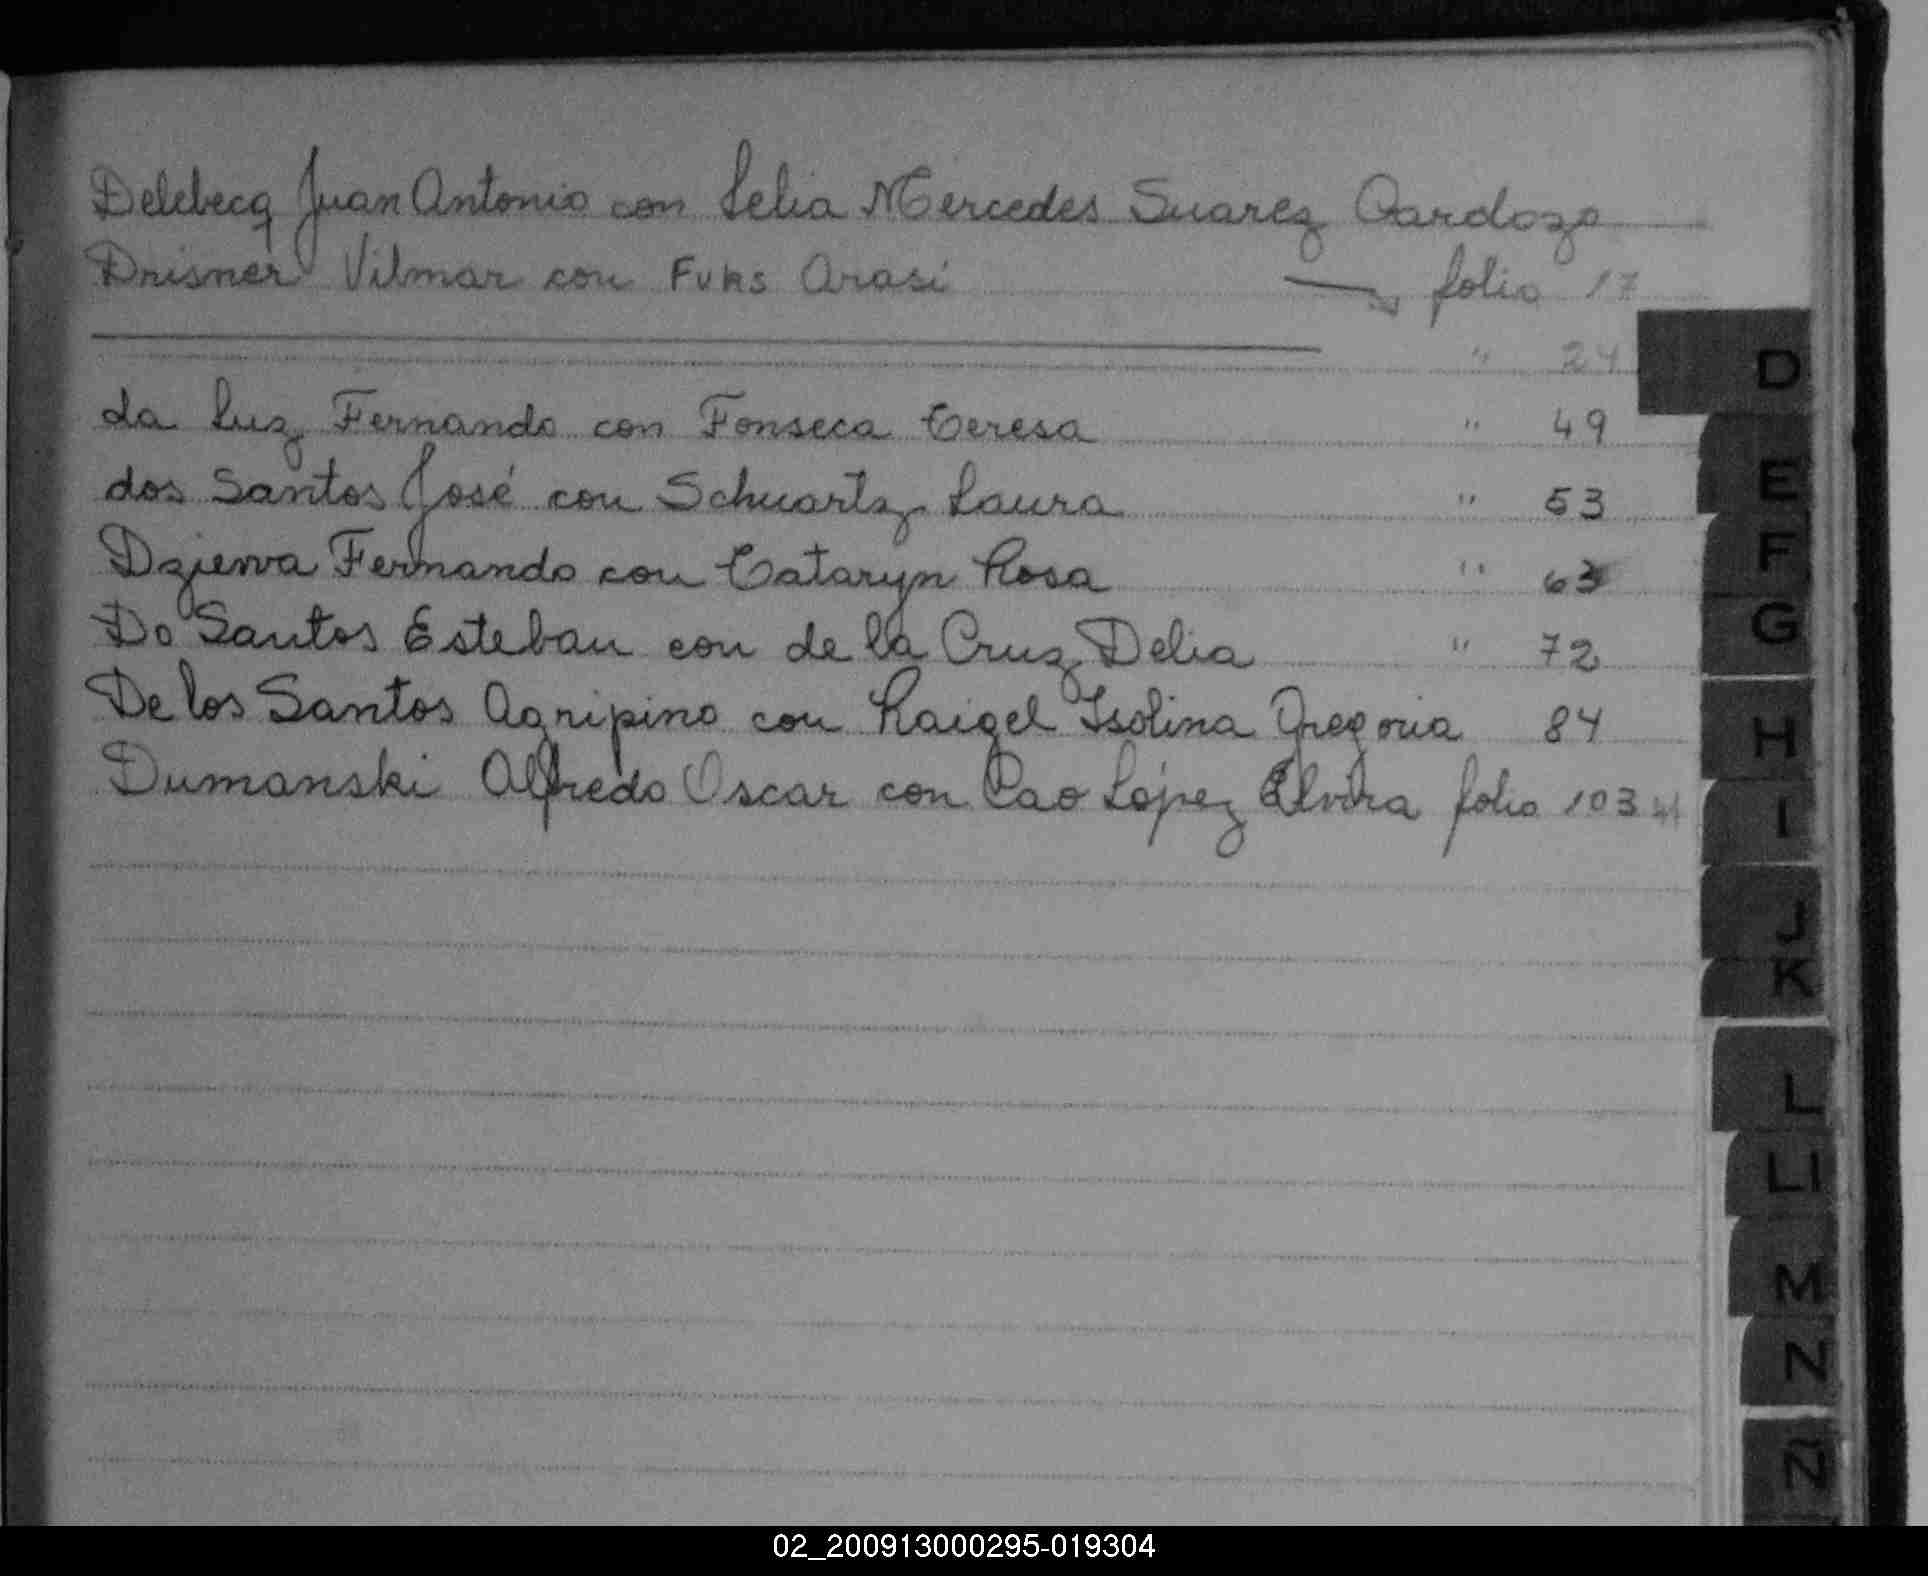 Delebecq Juan Antonio con Lelia Mercedes Suarez Cardozo
Drisner Vilmar con Fuks Arasi folio 17
" 24
da Luz Fernando con Fonseca Teresa " 49
dos Santos José con Schuartz Laura " 53
Dziewa Fernando con Cataryn Rosa " 63
Do Santos Esteban con de la Cruz Delia " 72
De los Santos Agripino con Raigel Isolina Gregoria 84
Dumanski Alfredo Oscar con Pao López Elvira folio 103
D
E
F
G
H
I
J
K
L
Ll
M
N
Ñ
02_200913000295-019304